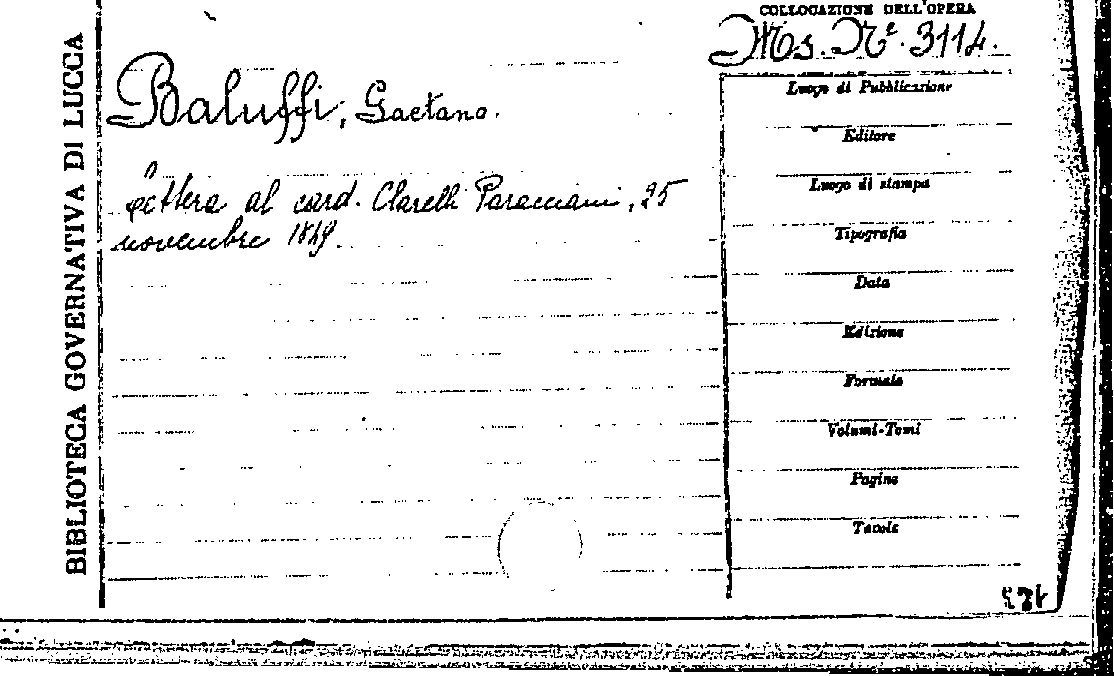 BIBLIOTECA GOVERNATIVA DI LUCCA
COLLOCAZIONE DELL'OPERA
Ms. Nº. 3114.
Baluffi, Gaetano.
Lettera al card. Clarelli Paracciani, 25
novembre 1849.
Luogo di Pubblicazione
Editore
Luogo di stampa
Tipografia
Data
Edizione
Formato
Volumi-Tomi
Pagine
Tavole